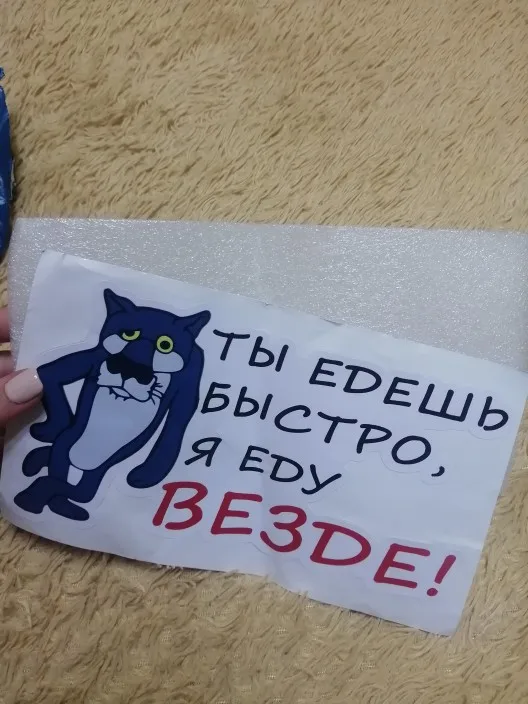 ТЫ ЕДЕШЬ
БЫСТРО,
Я ЕДУ
ВЕЗДЕ!